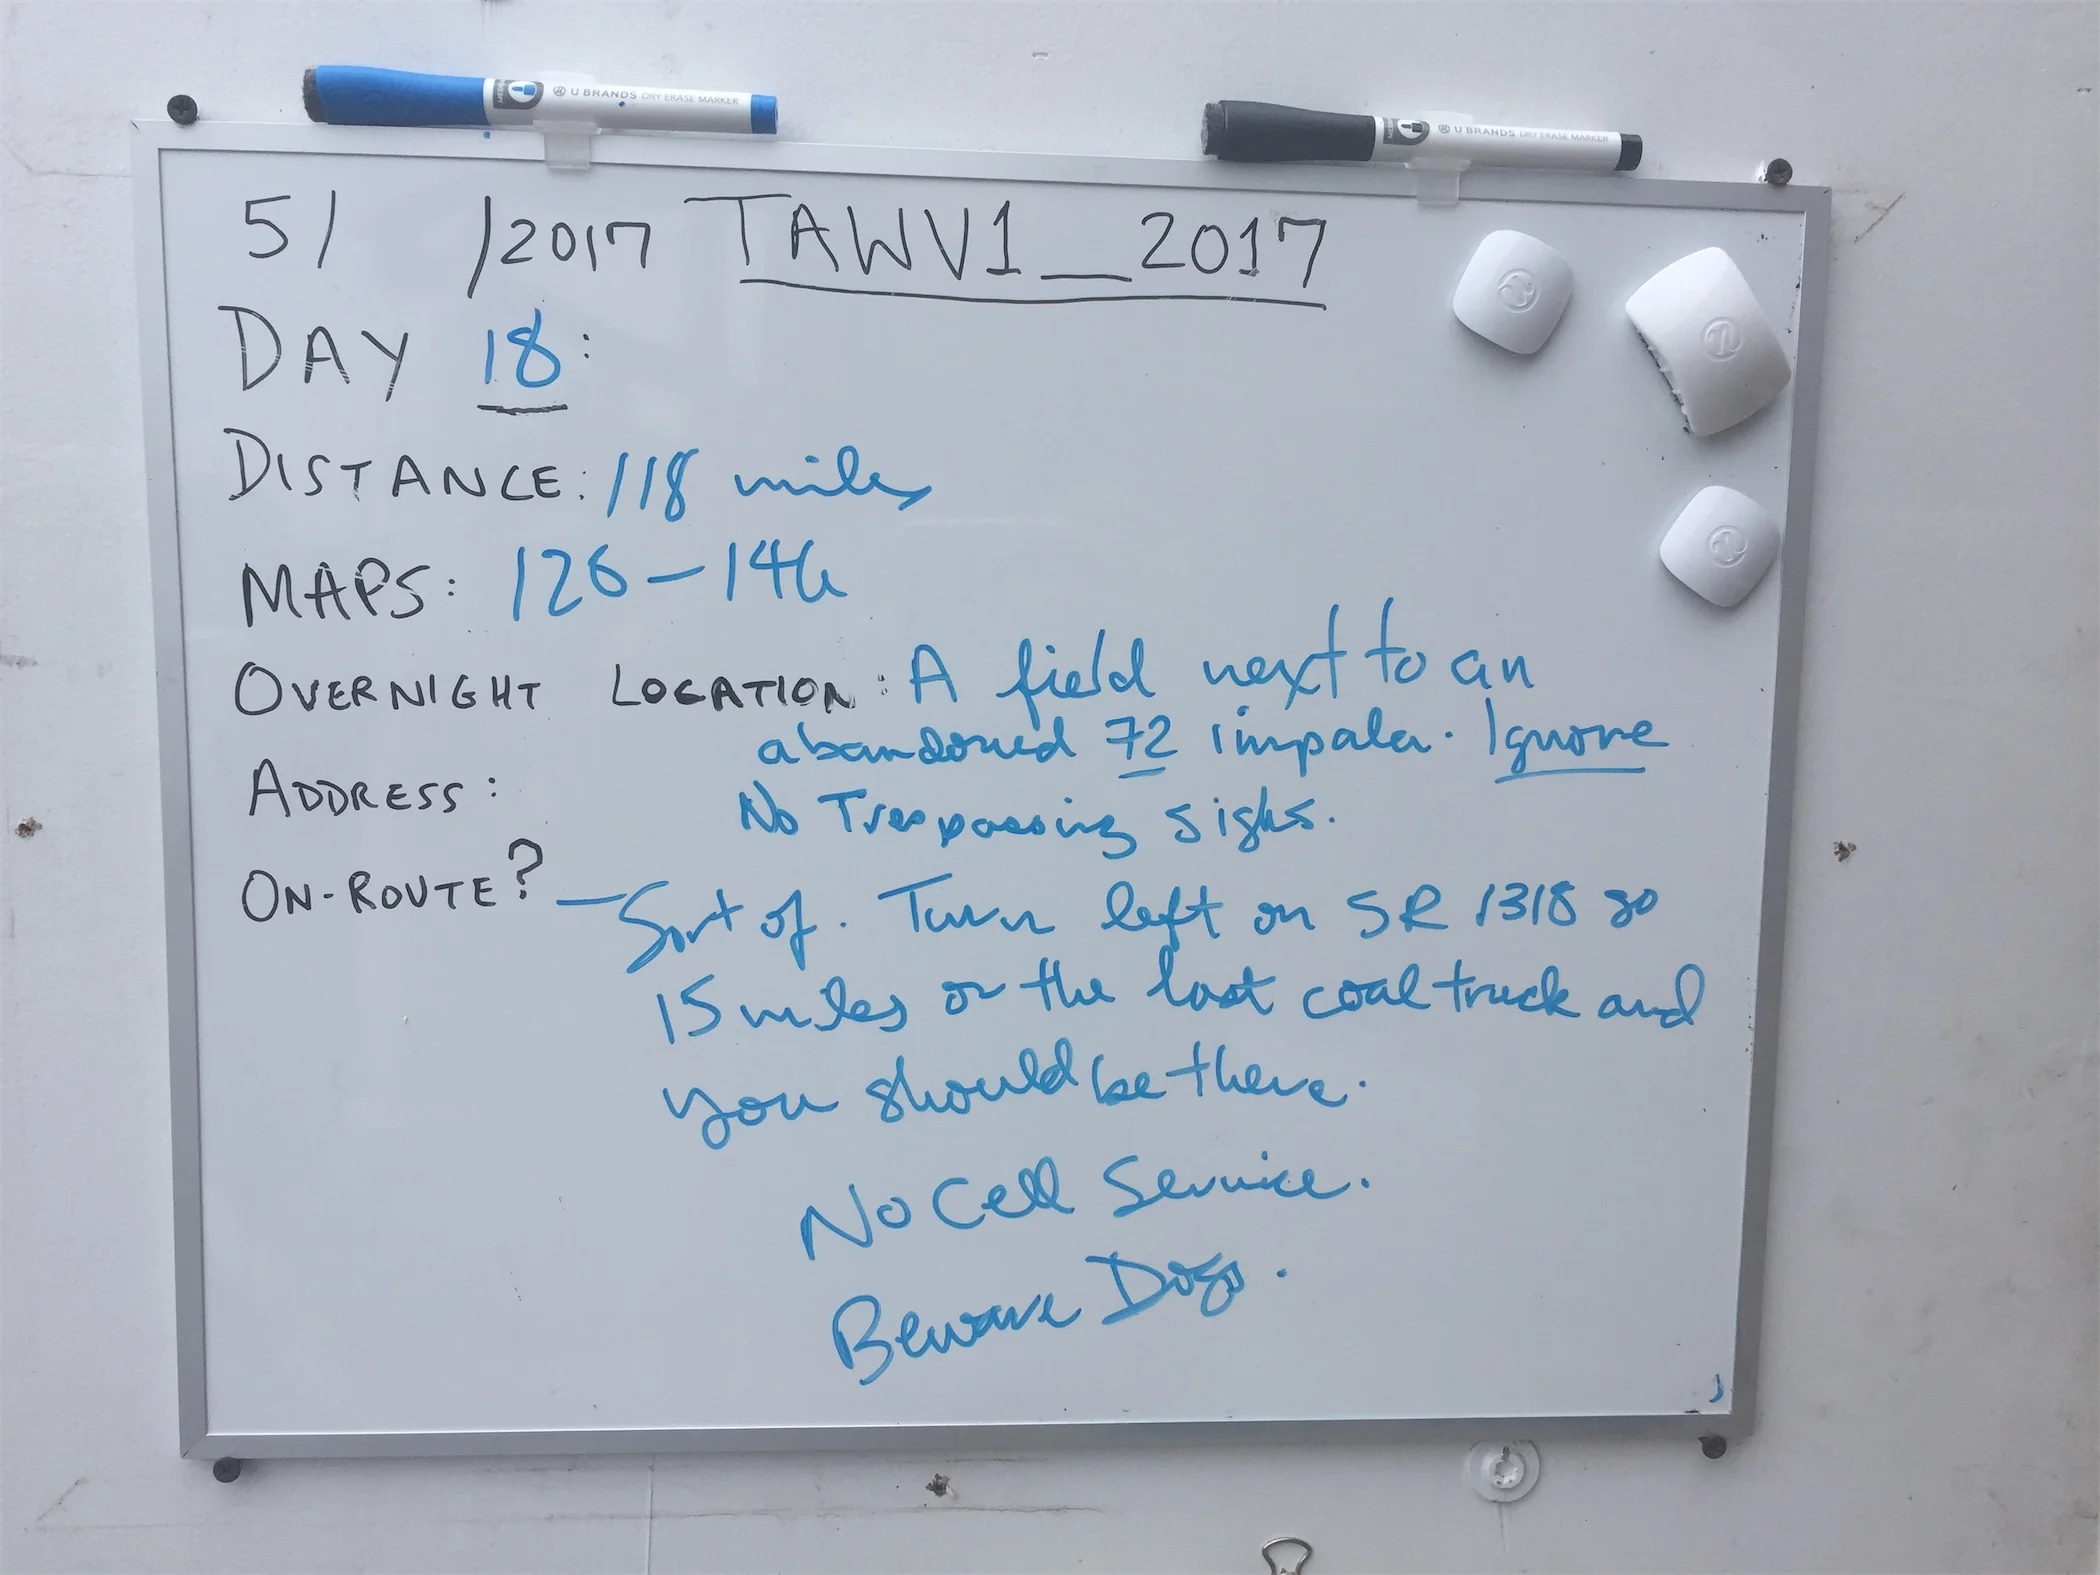 U BRANDS DRY ERASE MARKER
U BRANDS DRY ERASE MARKER
5/ /2017 TAWV1_2017
DAY 18:
DISTANCE: 118 miles
MAPS: 126-146
OVERNIGHT LOCATION: A field next to an
abandoned 72 impala. Ignore
No Trespassing signs.
ADDRESS:
ON-ROUTE? - Sort of. Turn left on SR 1318 go
15 miles or the last coal truck and
you should be there.
No Cell Service.
Beware Dogs.